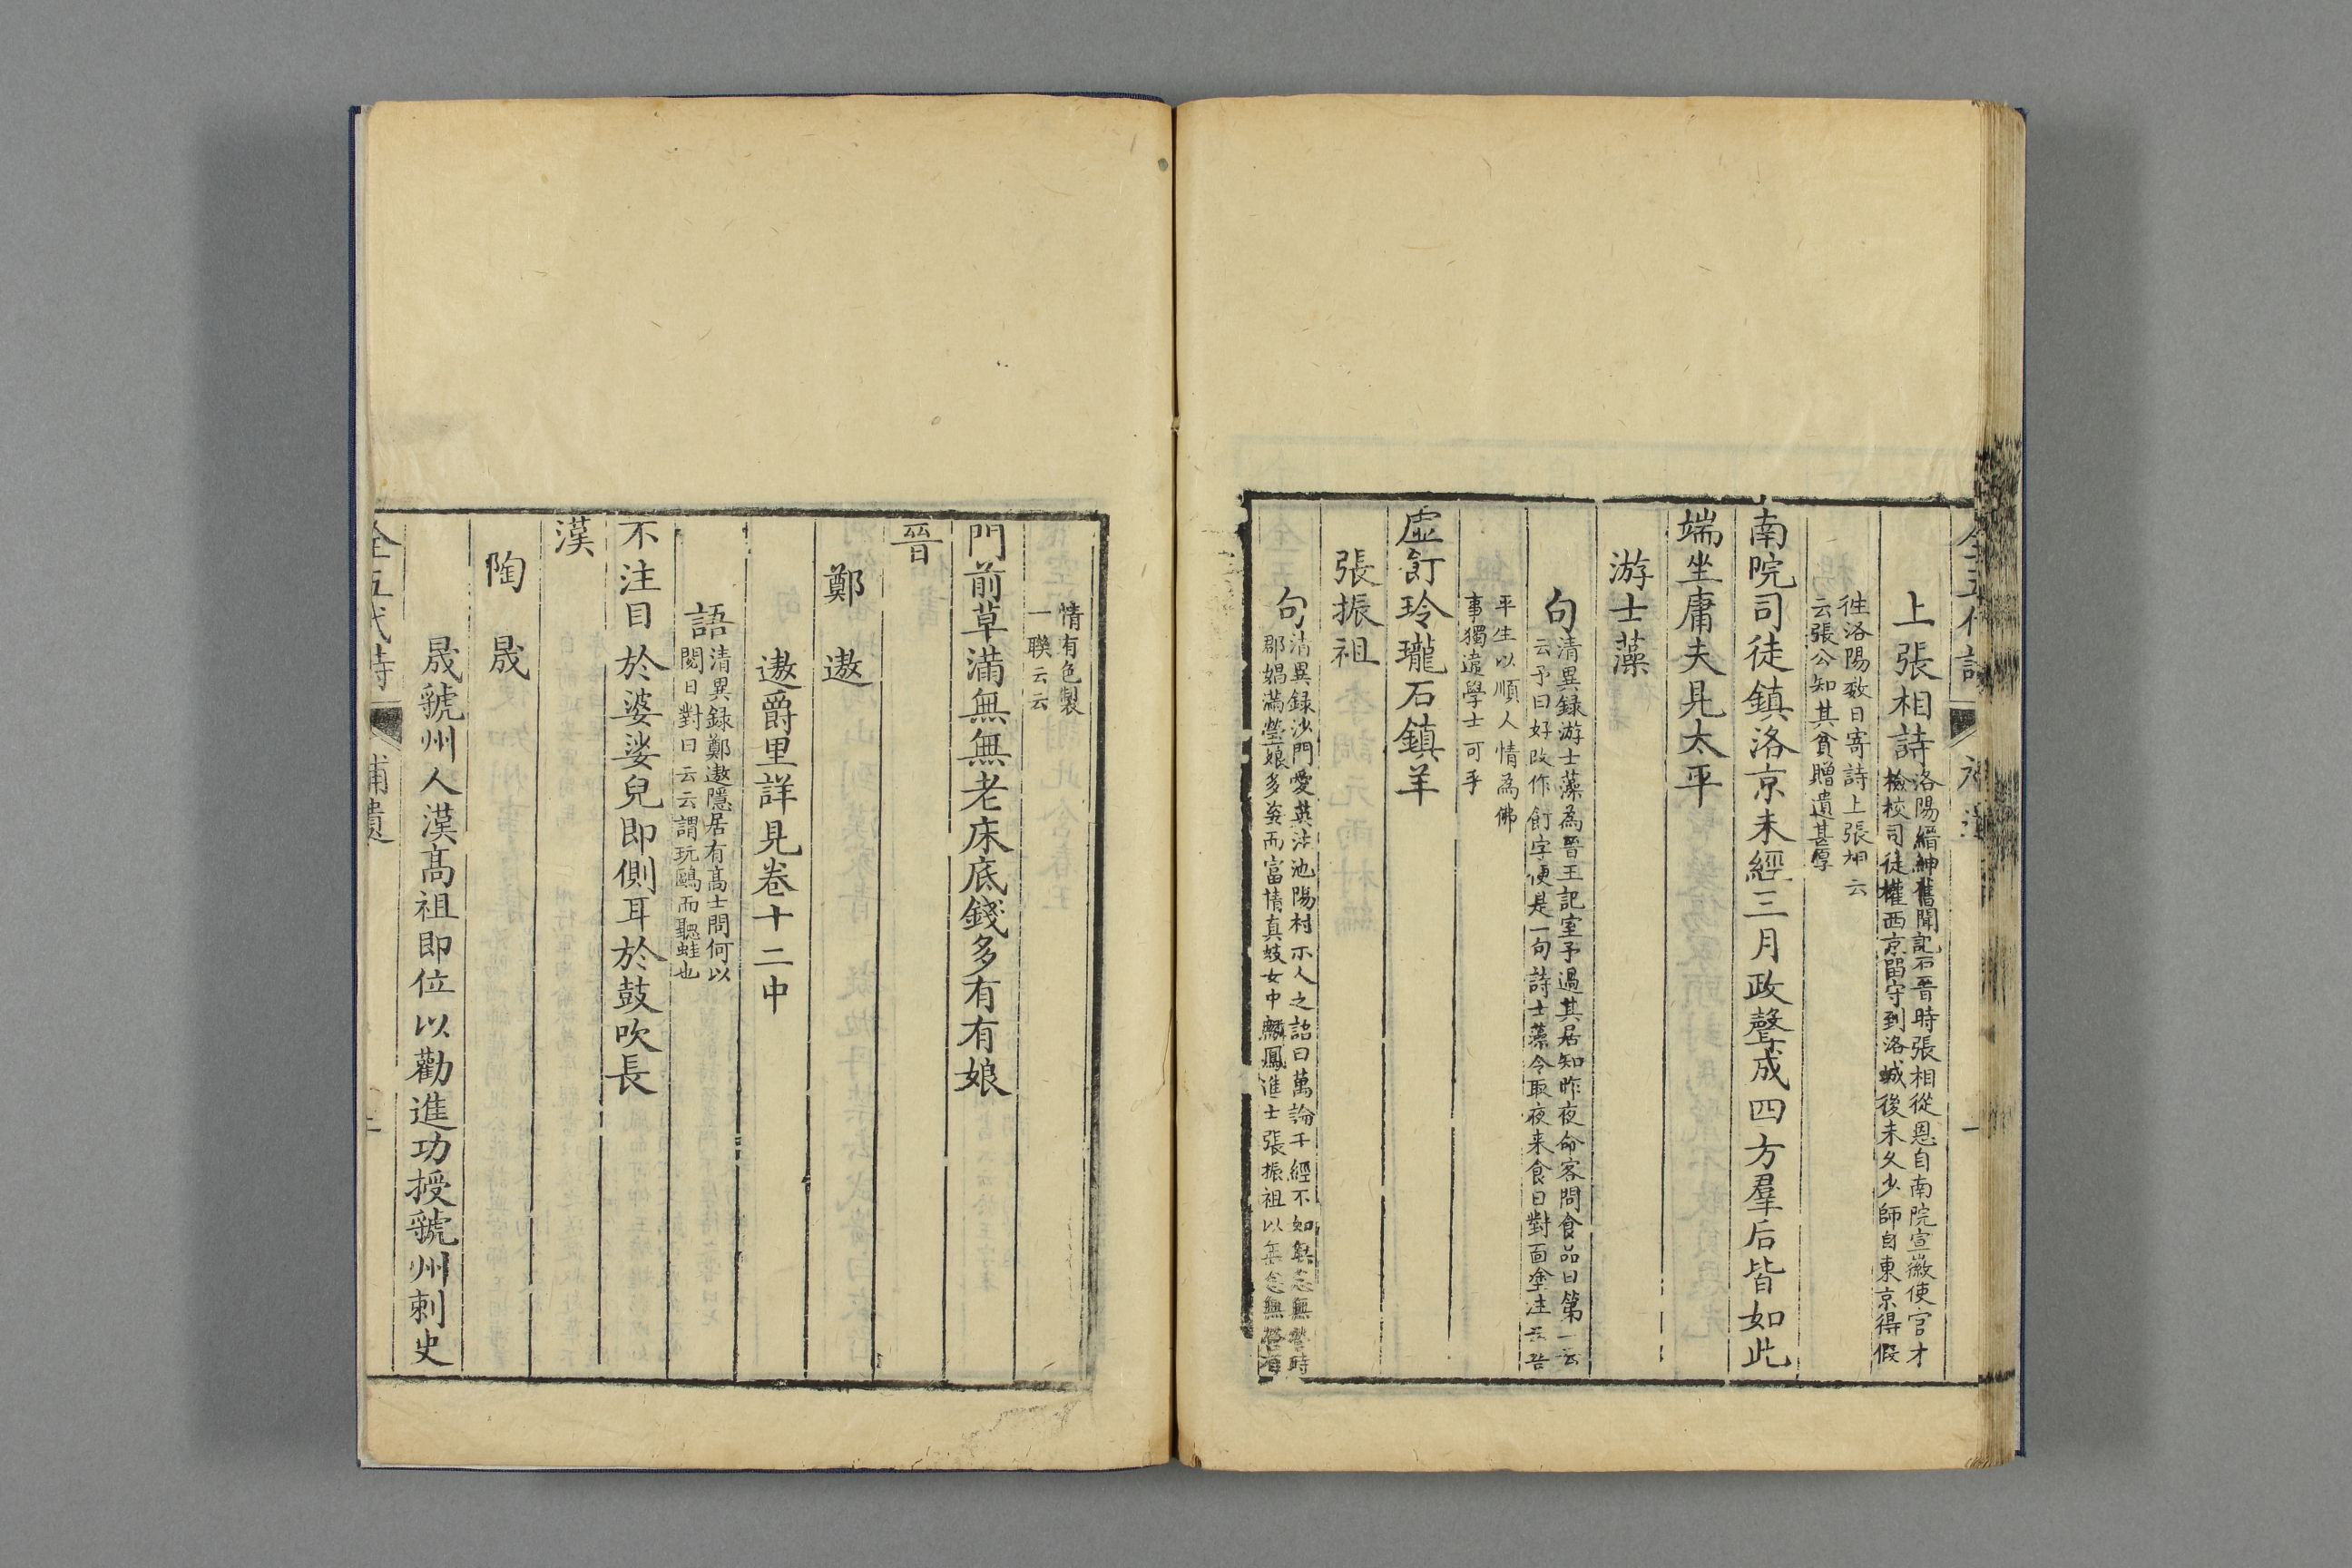 上張相詩洛陽縉紳舊聞記石晉時張相從恩自南院宣徽使官才
檢校司徒權西京留守到洛城後未久少師自東京得假
徃洛陽數日寄詩上張相云
云張公知其貧贈遺甚厚
南院司徒鎮洛京未經三月政聲成四方羣后皆如此
端坐庸夫見太平
游士藻
句清異録游士藻為晉王記室予過其居知昨夜命客問食品曰第一云
云予曰好改作飣字便是一句詩士藻令取夜来食目對面塗注云吾
平生以順人情為佛
事獨遺學士可乎
虛飣玲瓏石鎮羊
張振祖
句清異録沙門愛英沽池陽村 人之詔曰萬論千經不如無念無營時
郡娼滿瑩娘多姿而富情真妓女中麟鳳進士張振祖以無念無營
情有色製
一聯云云
門前草滿無無老床底錢多有有娘
晉
鄭遨
遨爵里詳見卷十二中
語清異録鄭遨隱居有高士問何以
閱日對曰云云謂玩鷗而聽蛙也
不注目於婆娑兒即側耳於鼓吹長
漢
陶晟
晟虢州人漢高祖即位以勸進功授虢州刺史
全五代詩 補遺